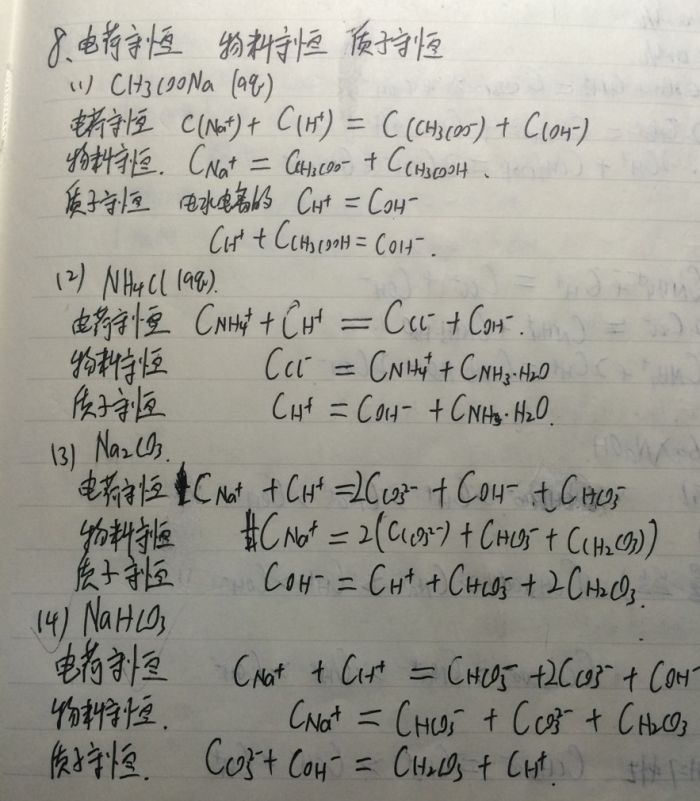 8、电荷守恒 物料守恒 质子守恒
(1) CH3COONa (aq)
电荷守恒 C(Na⁺) + C(H⁺) = C(CH3COO⁻) + C(OH⁻)
物料守恒. CNa⁺ = CCH3COO⁻ + CCH3COOH.
质子守恒 由水电离的 CH⁺ = COH⁻
CH⁺ + CCH3COOH = COH⁻.
(2) NH4Cl (aq).
电荷守恒 CNH4⁺ + CH⁺ = CCl⁻ + COH⁻.
物料守恒 CCl⁻ = CNH4⁺ + CNH3·H2O
质子守恒 CH⁺ = COH⁻ + CNH3·H2O.
(3) Na2CO3.
电荷守恒 CNa⁺ + CH⁺ = 2CCO3²⁻ + COH⁻ + CHCO3⁻
物料守恒 CNa⁺ = 2(C(CO3²⁻) + CHCO3⁻ + C(H2CO3))
质子守恒 COH⁻ = CH⁺ + CHCO3⁻ + 2CH2CO3.
(4) NaHCO3
电荷守恒 CNa⁺ + CH⁺ = CHCO3⁻ + 2CCO3²⁻ + COH⁻
物料守恒. CNa⁺ = CHCO3⁻ + CCO3²⁻ + CH2CO3
质子守恒. CCO3²⁻ + COH⁻ = CH2CO3 + CH⁺.